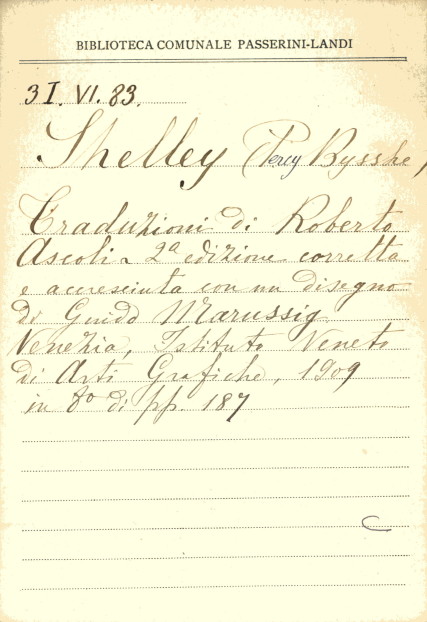 BIBLIOTECA COMUNALE PASSERINI-LANDI
3 I. VI. 83.
Shelley (Percy Bysshe)
Traduzioni di Roberto
Ascoli - 2ª edizione corretta
e accresciuta con un disegno
di Guido Marussig
Venezia, Istituto Veneto
di Arti Grafiche, 1909
in 8º di pp. 187
C